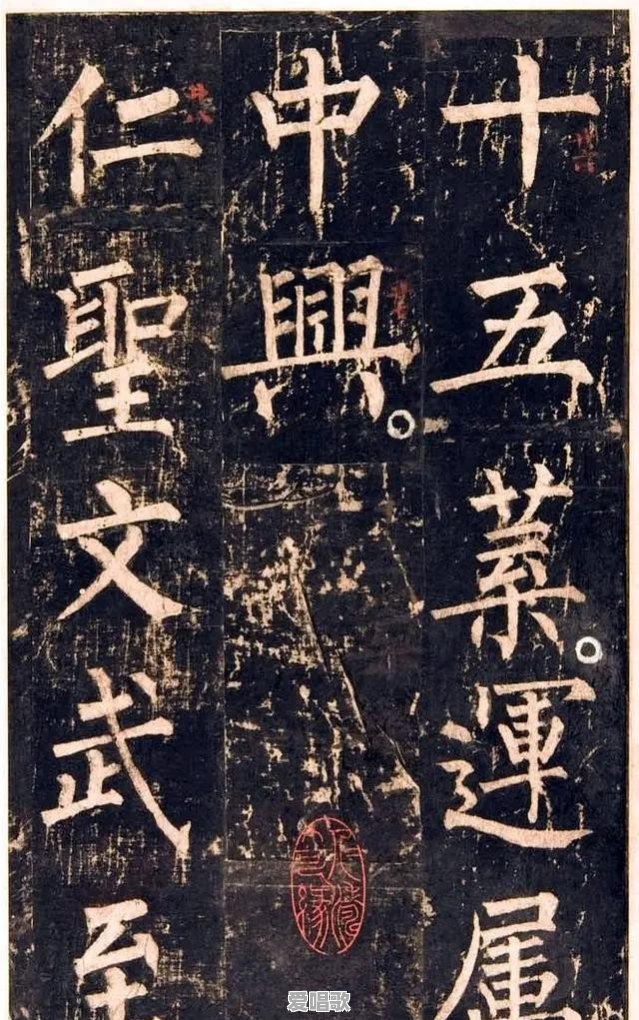 十五葉運属
中興
仁聖文武至
爱唱歌